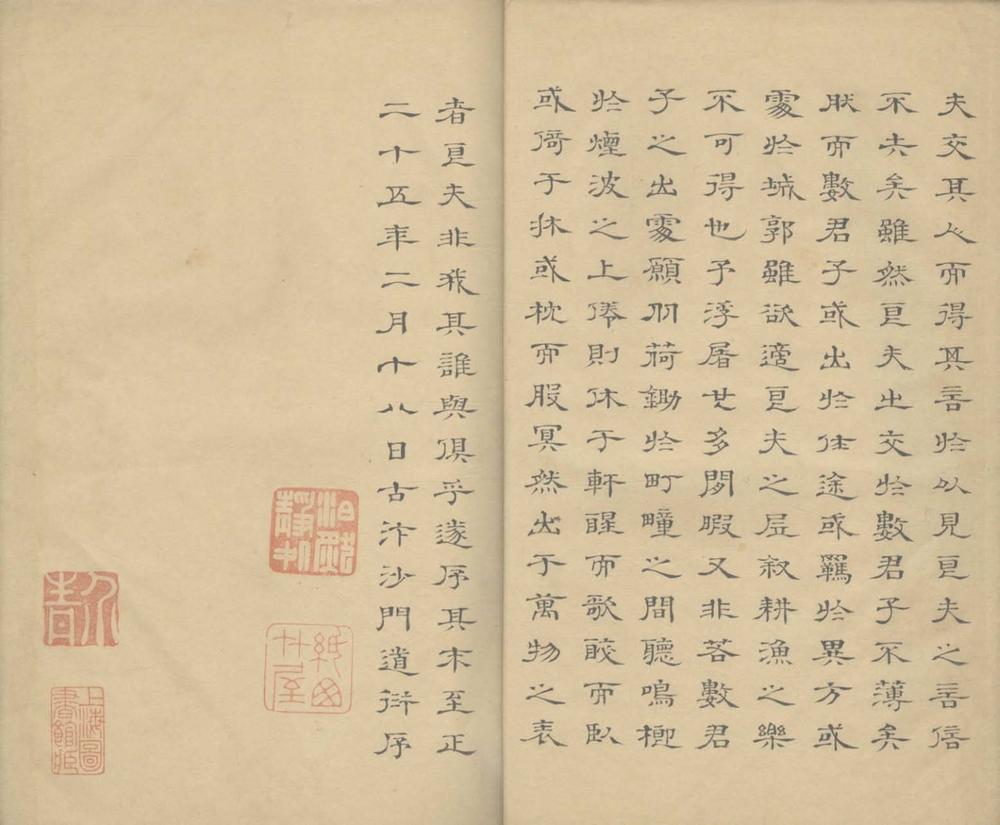 夫交其心而得其言於以見良夫之言信
不失矣雖然良夫之交於數君子不薄矣
然而數君子或出於仕途或羈於異方或
處於城郭雖欲適良夫之居叙耕漁之樂
不可得也予浮屠世多閒暇又非若數君
子之出處願朋荷鋤於町疃之間聽鳴榔
於煙波之上倦則休于軒醒而歌而臥
或倚于牀或枕而股冥然出于萬物之表
者良夫非我其誰與俱乎遂序其末至正
二十五年二月十八日古汴沙門道衍序
上海圖書館藏